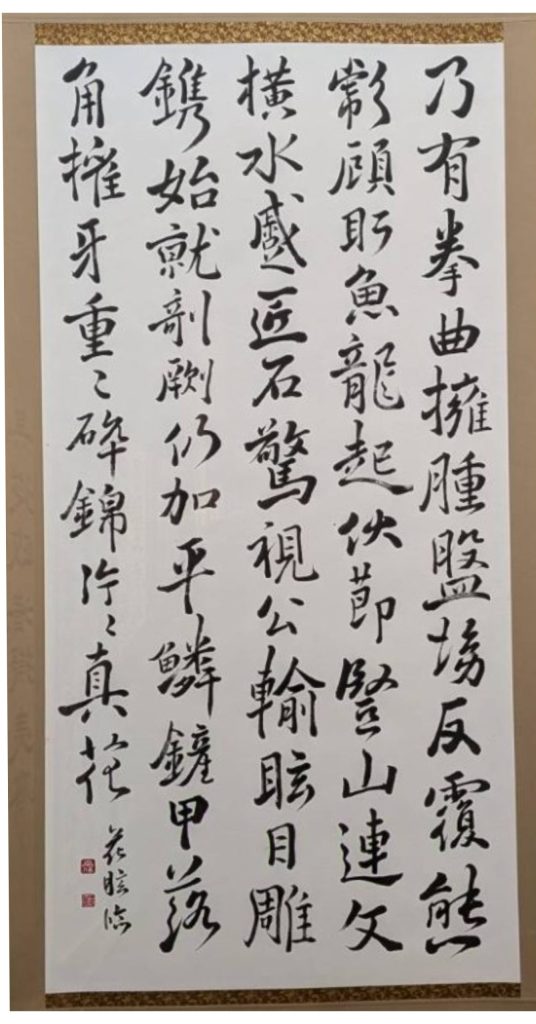 乃有拳曲擁腫盤坳反覆熊
彪顧盻魚龍起伏節竪山連文
横水蹙匠石驚視公輸眩目雕
鐫始就剞劂仍加平鱗鏟甲落
角摧牙重〻碎錦片〻真花
花臨